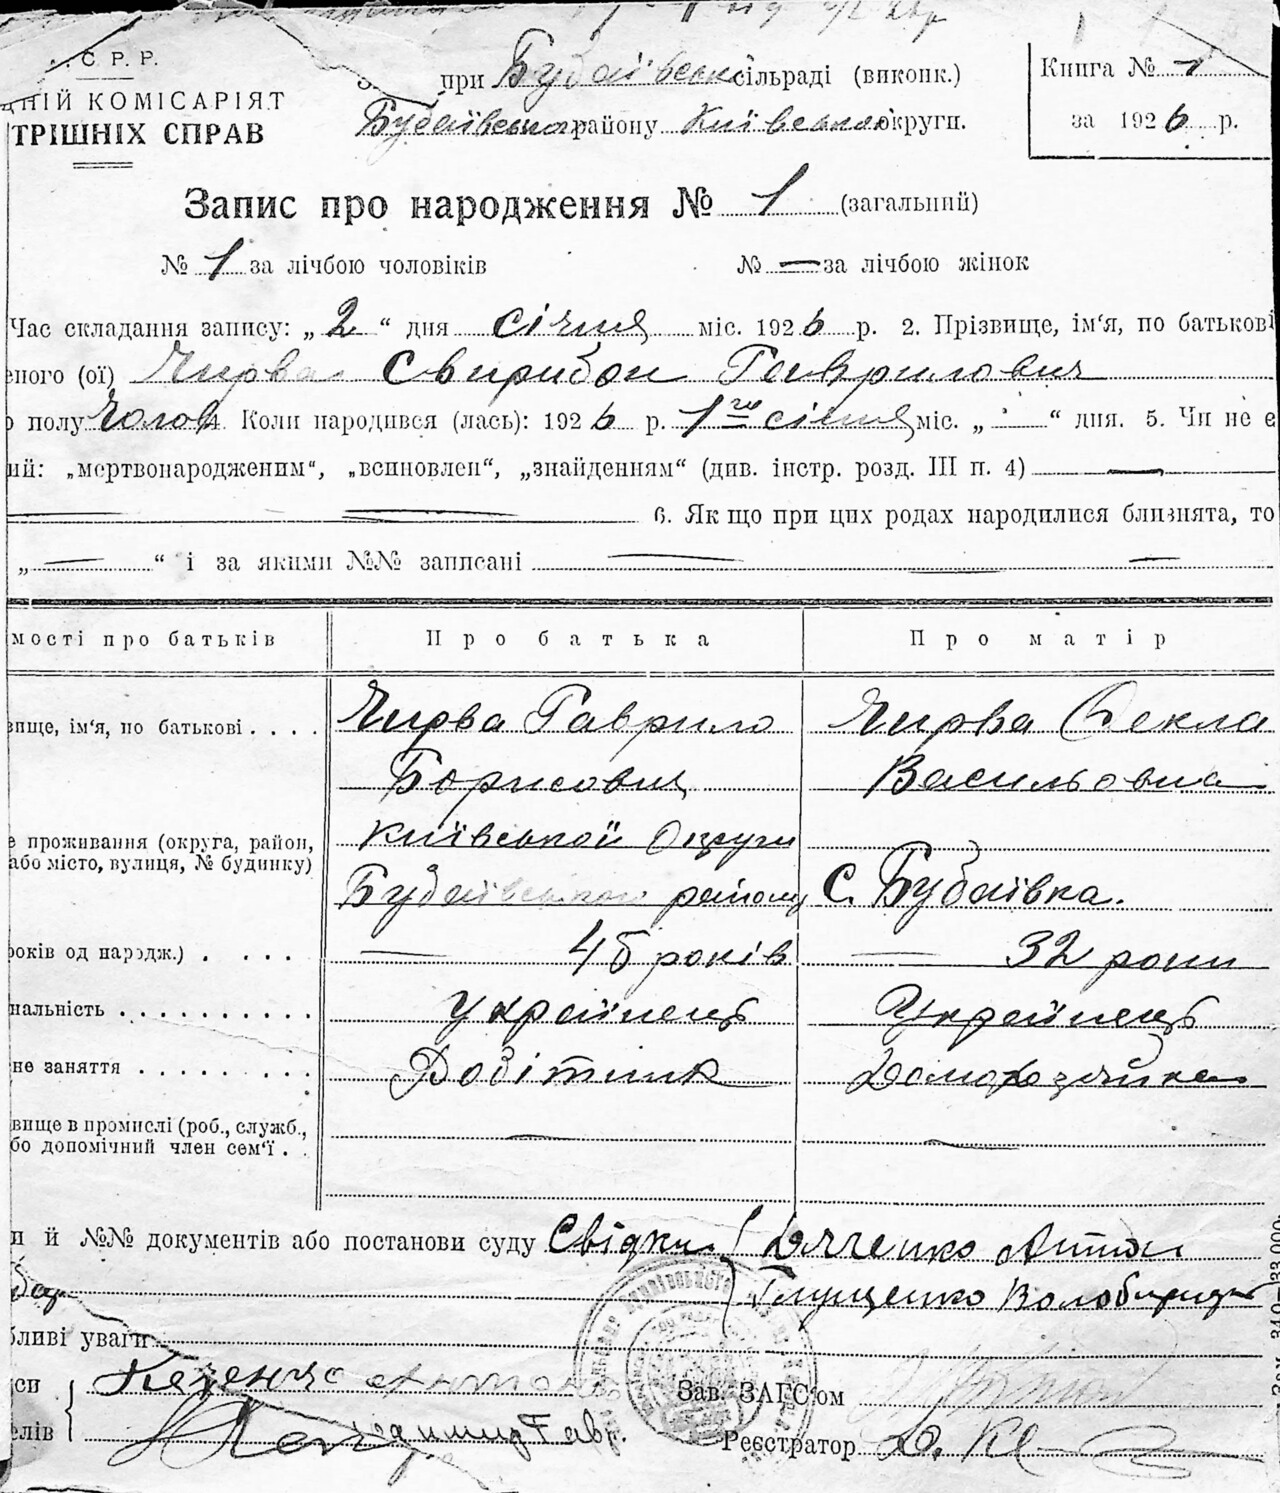 С. Р. Р.
КОМІСАРІЯТ
ТРІШНІХ СПРАВ
при Будаївській сільраді (виконк.)
Будаївського району Київської округи.
Книга № 1
за 1926 р.
Запис про народження № 1 (загальний)
№ 1 за лічбою чоловіків № — за лічбою жінок
Час складання запису: „ 2 “ дня січня міс. 1926 р. 2. Прізвище, ім'я, по батькові
еного (ої) Чирва Гаврилович
полу Чолов 4. Коли народився (лась): 1926 р. 1го січня міс. „ — “ дня. 5. Чи не є
ий: „мертвонародженим“, „всиновлен“, „знайденням“ (див. інстр. розд. III п. 4) —
6. Як що при цих родах народилися близнята, то
„ — “ і за якими №№ записані —
мості про батьків Про батька Про матір
вище, ім'я, по батькові . . . . Чирва Гаврило Чирва Текла
Борисович Васильовна
е проживання (округа, район, Київської Округи
або місто, вулиця, № будинку)
Будаївського району С. Будаївка.
років од народж.) . . . . — 45 років — 32 роки
нальність . . . . . . . . . . українець Українець
не заняття . . . . . . . . Робітник Домохазяйка
вище в промислі (роб., служб., —
бо допомічний член сем'ї . . —
и й №№ документів або постанови суду Свідки Дяченко Антон
Глущенко
бливі уваги
си Антон Зав. ЗАГС'ом
елів Гавр. Реєстратор